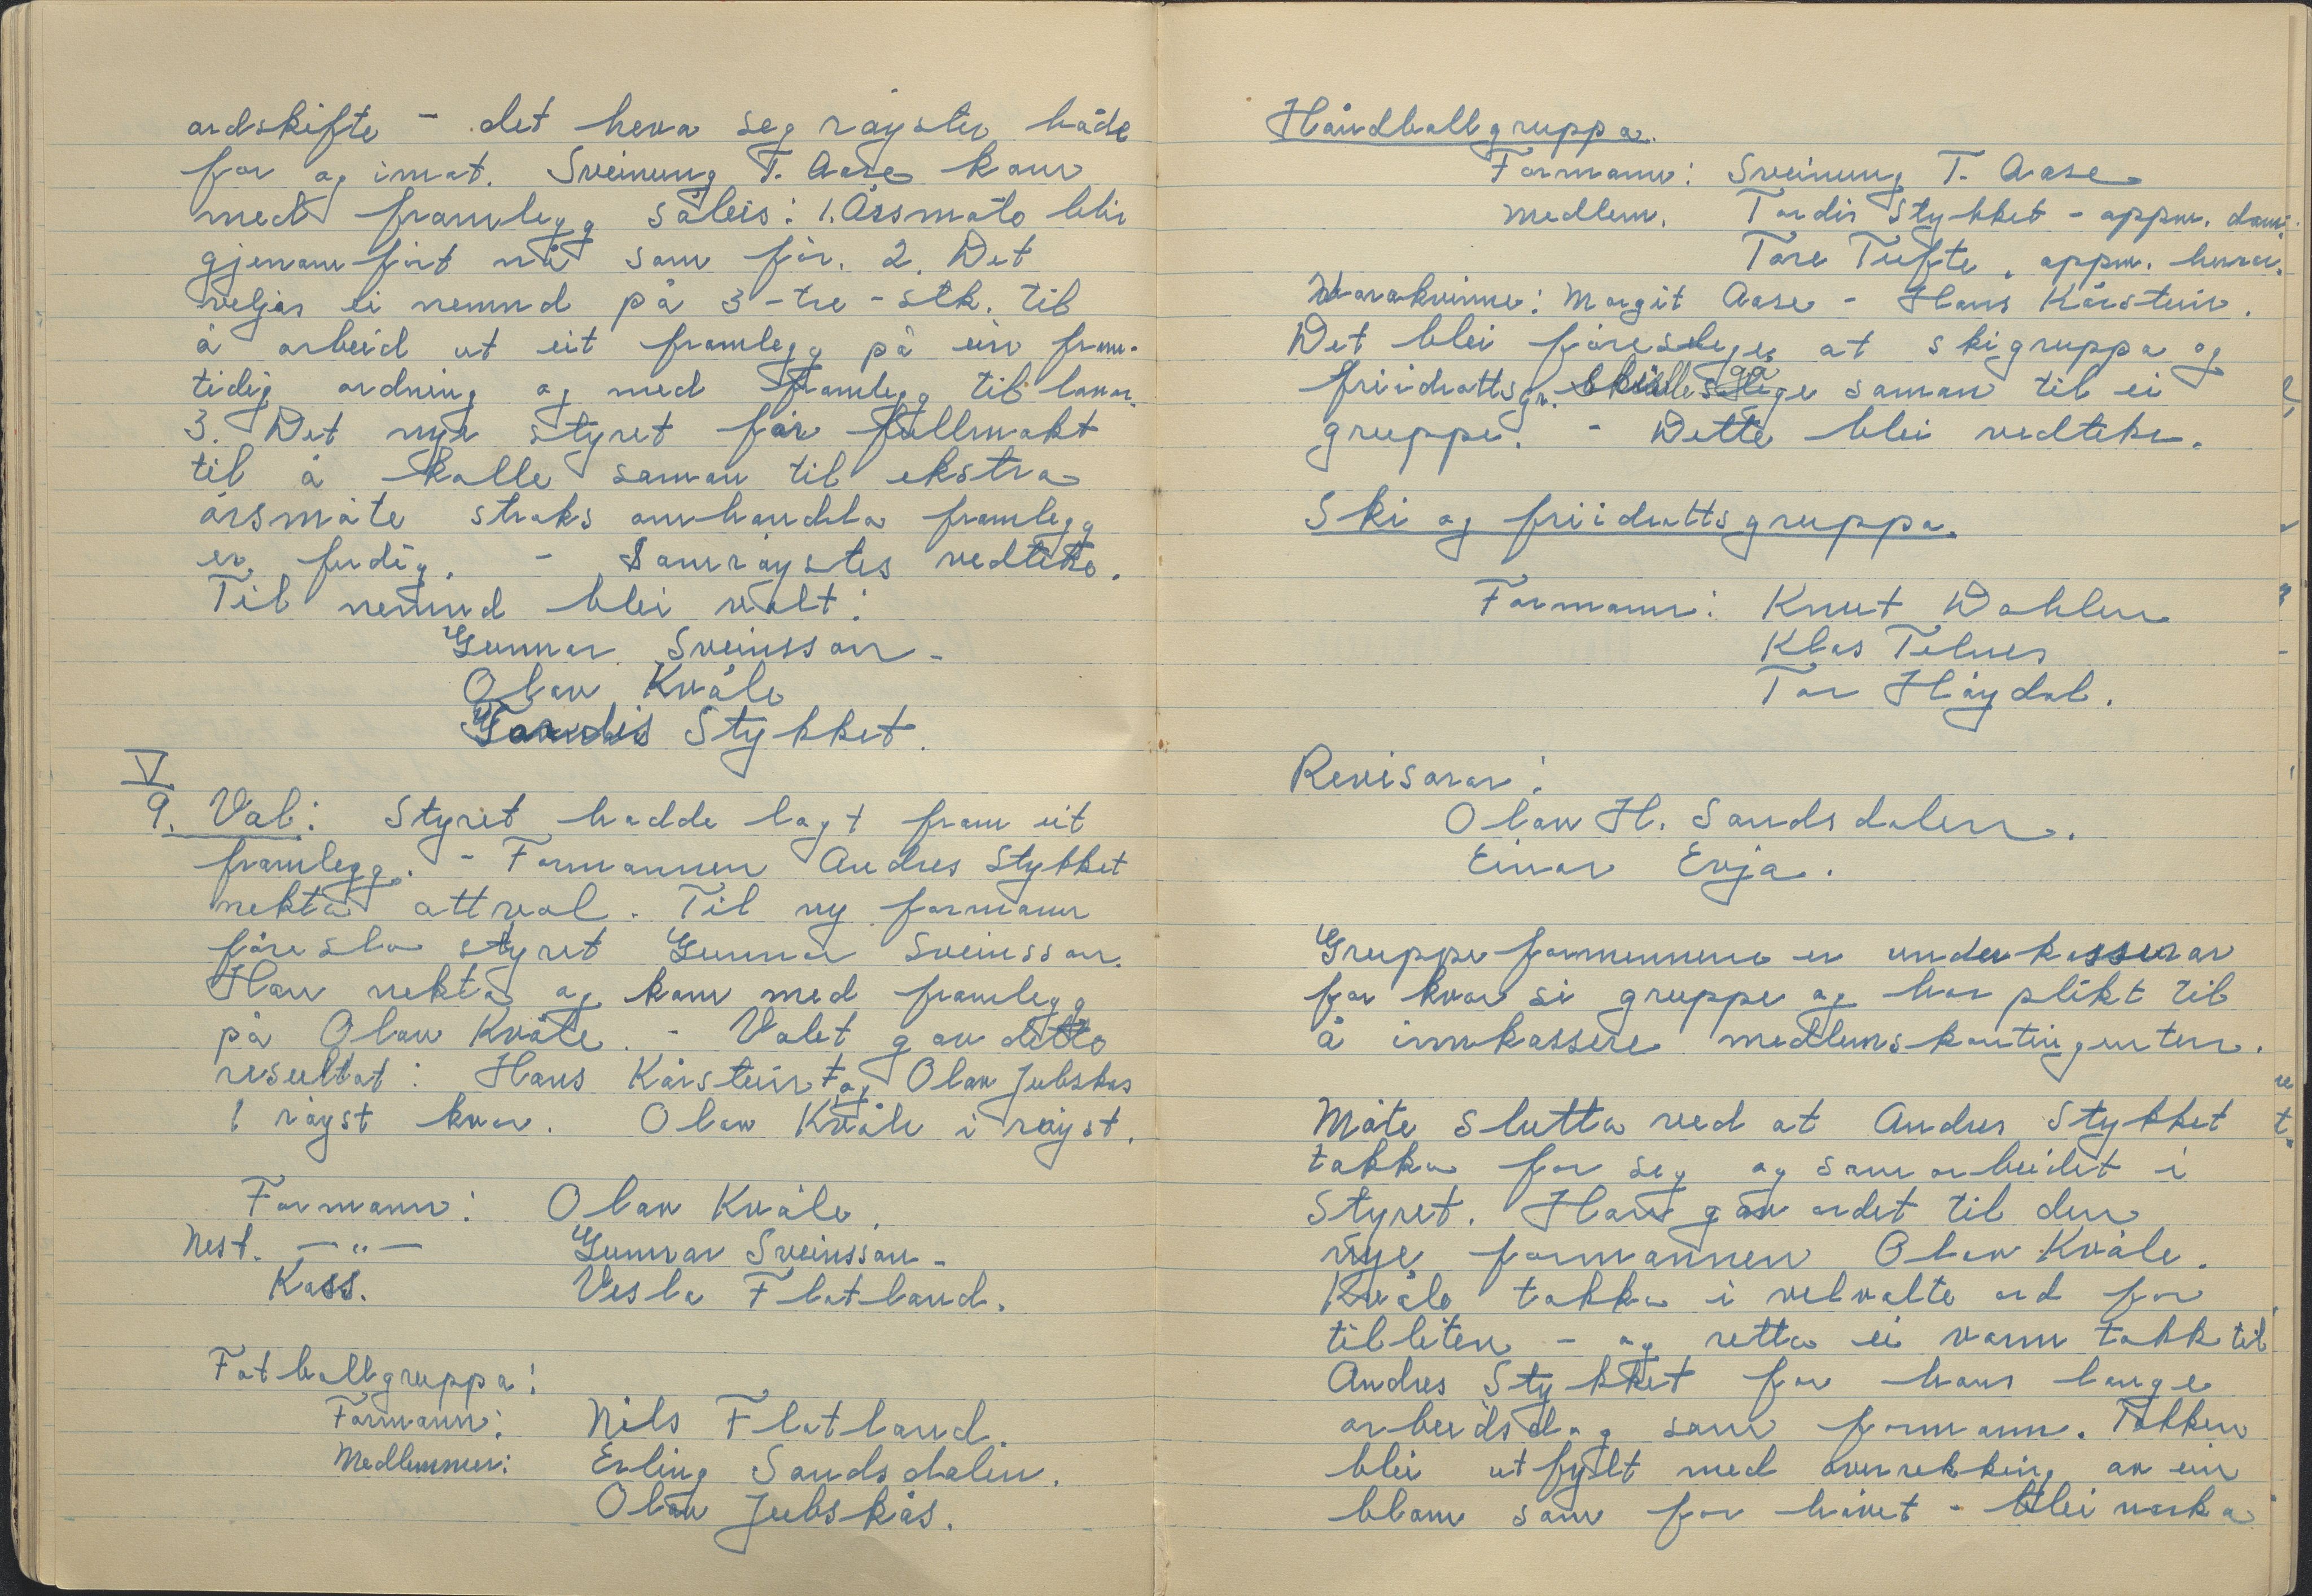 ordskifte - det heva seg røyster både
for og imot. Sveinung T. Aase kom
med framlegg såleis: 1. Åssmøte blir
gjenomført nå som før. 2. Det
veljas ei nemnd på 3-tre-stk. til
å arbeid ut eit framlegg på ein fram-
tidig ordning og med framlegg til lover.
3. Det nye styret får fullmakt
til å kalle saman til ekstra
årsmøte straks omhandla framlegg
er ferdig. - Samrøystes vedteke.
Til nemnd blei valt:
Gunnar Sveinsson -
Olav Kvåle
Tordis Stykket.
V
9. Val: Styret hadde lagt fram eit
framlegg. - Formannen Andres Stykket
nekta attval. Til ny formann
føreslo styret Gunnar Sveinsson.
Han nekta og kom med framlegg
på Olav Kvåle. - Valet gav dette
resultat: Hans Kårstein og Olav Jubskås
1 røyst kvar. Olav Kvåle i røyst.
Formann: Olav Kvåle.
Nest. — " — Gunnar Sveinsson -
Kass. Vesla Flatland.
Fotballgruppa:
Formann: Nils Flatland.
Medlemmer: Erling Sandsdalen.
Olav Jubskås.
Håndballgruppa.
Formann: Sveinung T. Aase
Medlem. Tordis Stykket - oppm. dam.
Tore Tufte, oppm. herrar.
Varakvinne: Margit Aase - Hans Kårstein.
Det blei føreslege at skigruppa og
friidrottsgr. skulle gå saman til ei
gruppe. - Dette blei vedteke.
Ski og friidrottsgruppa.
Formann: Knut Dahlen
Klas Telnes
Tor Høydal.
Revisorar:
Olav H. Sandsdalen.
Einar Evja.
Gruppeformennene er underkasserar
for kvar si gruppe og har plikt til
å innkassere medlemskontingenten.
Møte slutta ved at Andres Stykket
takka for seg og samarbeidet i
Styret. Han gav ordet til den
nye formannen Olav Kvåle.
Kvåle takka i velvalte ord for
tilliten - og retta ei varm takk til
Andres Stykket for hans lange
arbeidsdag som formann. Takken
blei utfylt med overrekking av ein
blom som for høvet - blei verka